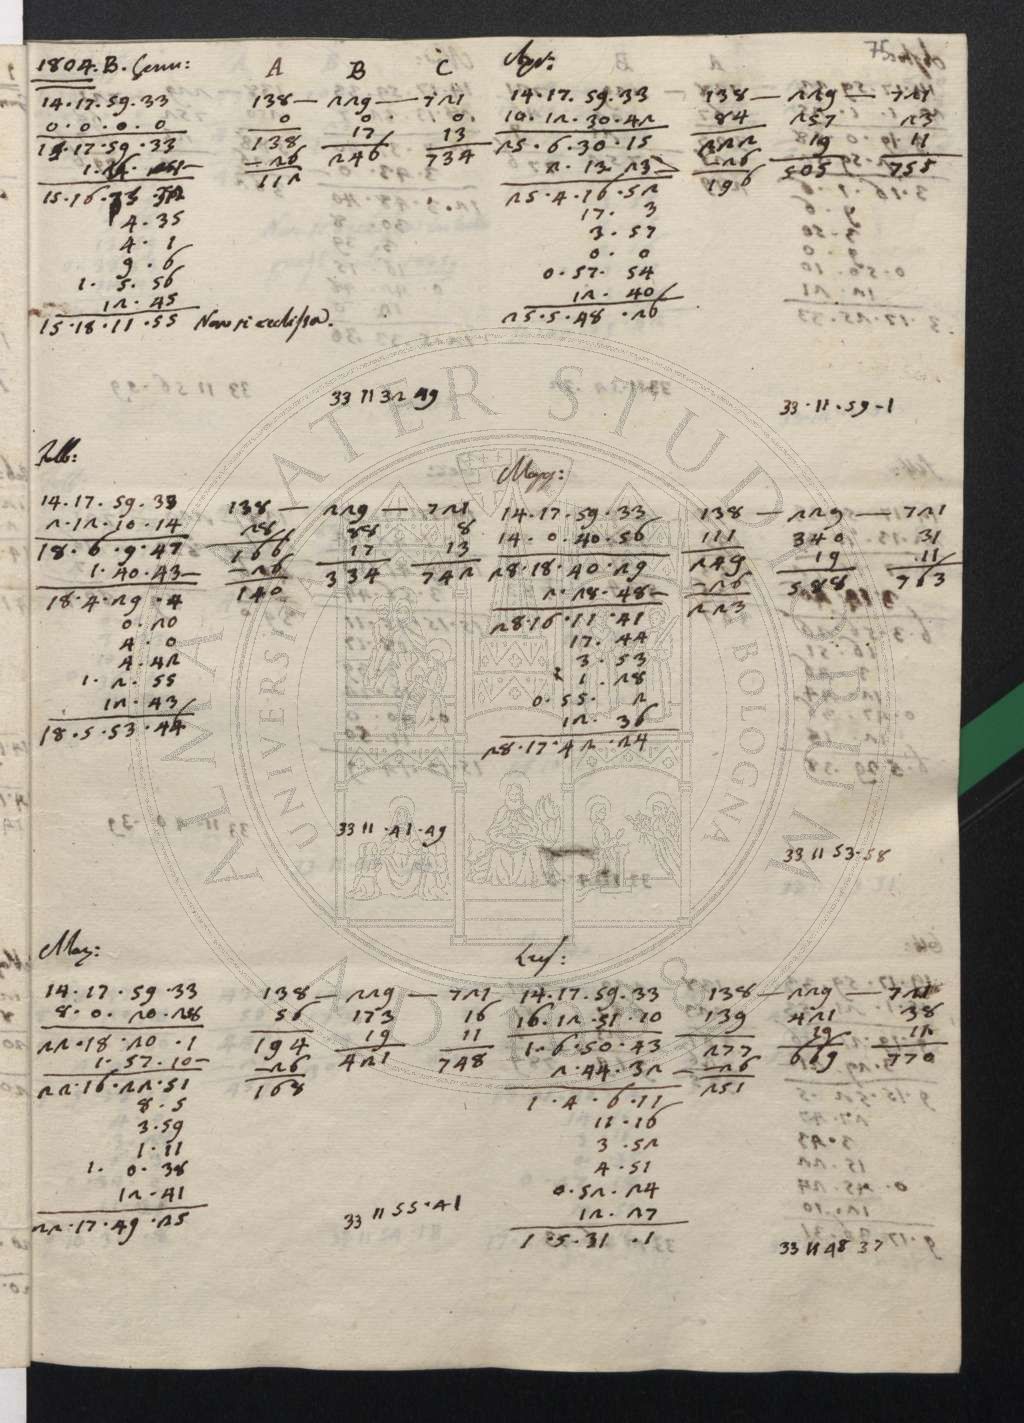 75
1804. B. Genn:
A B C
14.17.59.33 138 — 229 — 721
0.0.0.0 0 0. 0.
14.17.59.33 138 17 13
-26 246 734
112
15.16.
4.35
4.1
9.6
1.5.56
12.45
15.18.11.55 Non si ecclissa.
33 11 32 49
Apr:
14.17.59.33 138 — 229 — 721
10.12.30.42 84 257 23
25.6.30.15 222 19 11
2.13.23- -26 505 755
25.4.16.52 196
17.3
3.57
0.0
0.57.54
12.40
25.5.48.26
33.11.59-1
Febb:
14.17.59.33 138 — 229 — 721
2.12.10.14 28 88 8
18.6.9.47 166 17 13
1.40.43- -26 334 742
18.4.29.4 140
0.20
4.0
4.42
1.2.55
12.43
18.5.53.44
33 11.41.49
Magg:
14.17.59.33 138 — 229 — 721
14.0.40.56 111 340 31
28.18.40.29 249 19 11
2.28.48- -26 588 763
28.16.11.41 223
17.44
3.53
1.28
0.55.2
12.36
28.17.42.24
33 11 53.58
Marz:
14.17.59.33 138 — 229 — 721
8.0.20.28 56 173 16
22.18.20.1 194 19 11
1.57.10- -26 421 748
22.16.22.51 168
8.5
3.59
1.11
1.0.38
12.41
22.17.49.25
33 11 55.41
Lug:
14.17.59.33 138 — 229 — 721
16.12.51.10 139 421 38
1.6.50.43 277 19 11
2.44.32 -26 669 770
1.4.6.11 251
11.16
3.52
4.51
0.52.24
12.27
1.5.31.1
33 11 48 37
ALMA MATER STUDIORUM
UNIVERSITÀ DI BOLOGNA